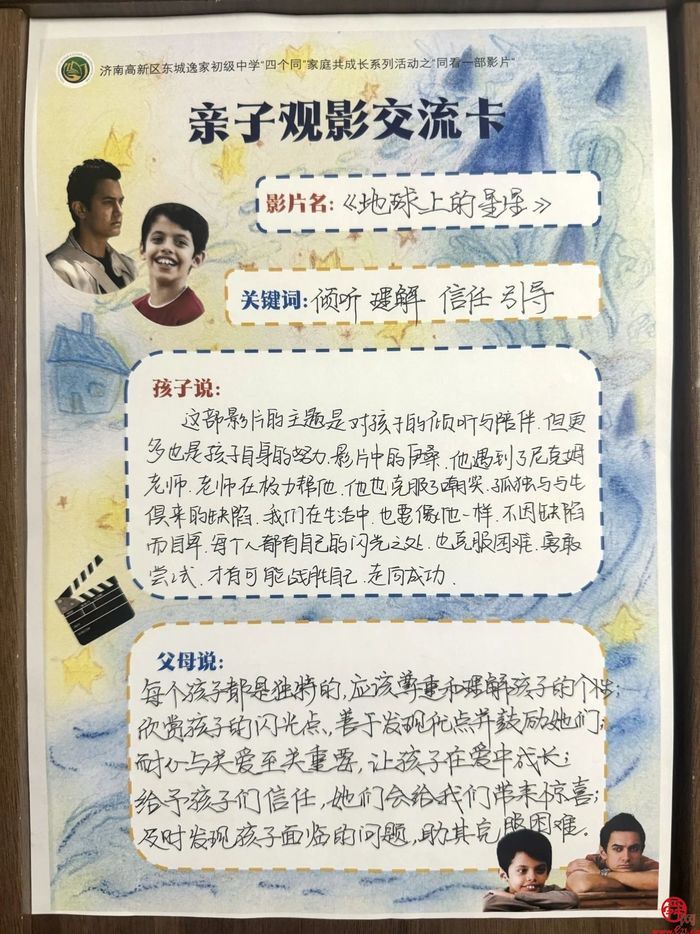 济南高新区东城逸家初级中学“四个同”家庭共成长系列活动之“同看一部影片”
亲子观影交流卡
影片名:《地球上的星星》
关键词:倾听 理解 信任 引导
孩子说:
这部影片的主题是对孩子的倾听与陪伴.但更
多也是孩子自身的努力.影片中的伊桑.他遇到了尼克姆
老师.老师在极力帮他.他也克服了嘲笑.孤独与与生
俱来的缺陷.我们在生活中.也要像他一样.不因缺陷
而自卑.每个人都有自己的闪光之处.也克服困难.勇敢
尝试.才有可能战胜自己.走向成功.
父母说:
每个孩子都是独特的,应该尊重和理解孩子的个性;
欣赏孩子的闪光点,善于发现优点并鼓励她们;
耐心与关爱至关重要,让孩子在爱中成长;
给予孩子们信任,她们会给我们带来惊喜;
及时发现孩子面临的问题,助其克服困难.